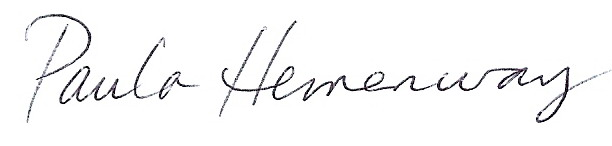 Paula Hemenway